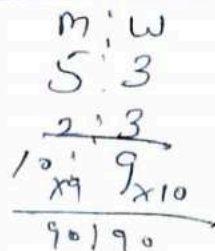 m : w
5 : 3
2 : 3
10 : 9
x9 x10
90 : 90